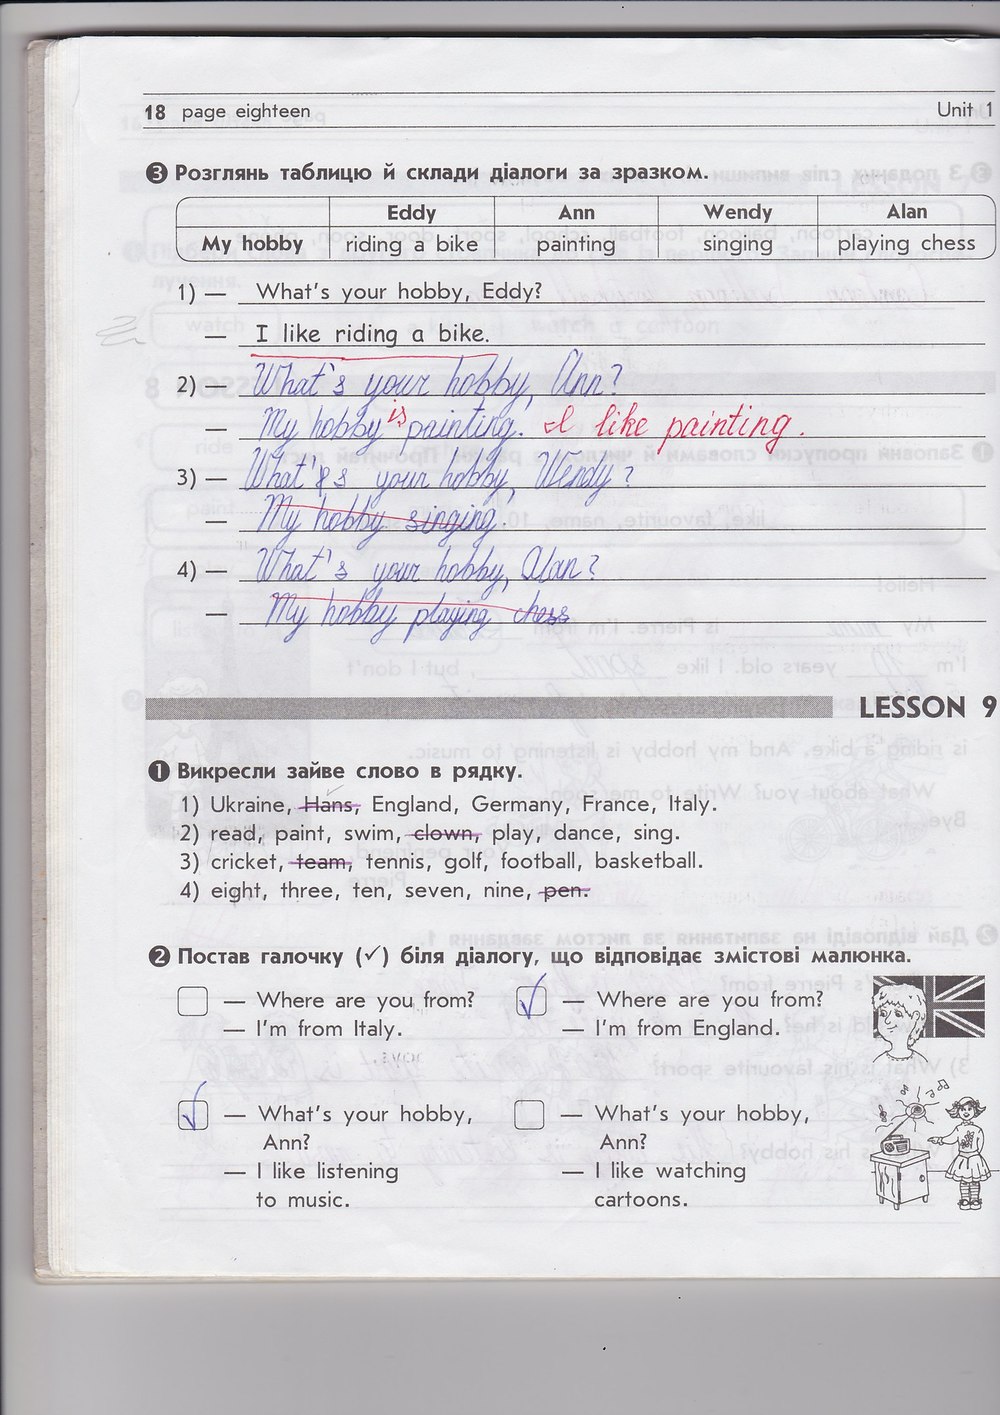 18 page eighteen Unit 1
3 Розглянь таблицю й склади діалоги за зразком.
Eddy Ann Wendy Alan
My hobby riding a bike painting singing playing chess
1) — What's your hobby, Eddy?
— I like riding a bike.
2) — What's your hobby, Ann?
— My hobby is painting. I like painting.
3) — What's your hobby, Wendy?
— My hobby singing.
4) — What's your hobby, Alan?
— My hobby playing chess
LESSON 9
1 Викресли зайве слово в рядку.
1) Ukraine, Hans, England, Germany, France, Italy.
2) read, paint, swim, clown, play, dance, sing.
3) cricket, team, tennis, golf, football, basketball.
4) eight, three, ten, seven, nine, pen.
2 Постав галочку (✓) біля діалогу, що відповідає змістові малюнка.
— Where are you from? ✓ — Where are you from?
— I'm from Italy. — I'm from England.
✓ — What's your hobby, — What's your hobby,
Ann? Ann?
— I like listening — I like watching
to music. cartoons.